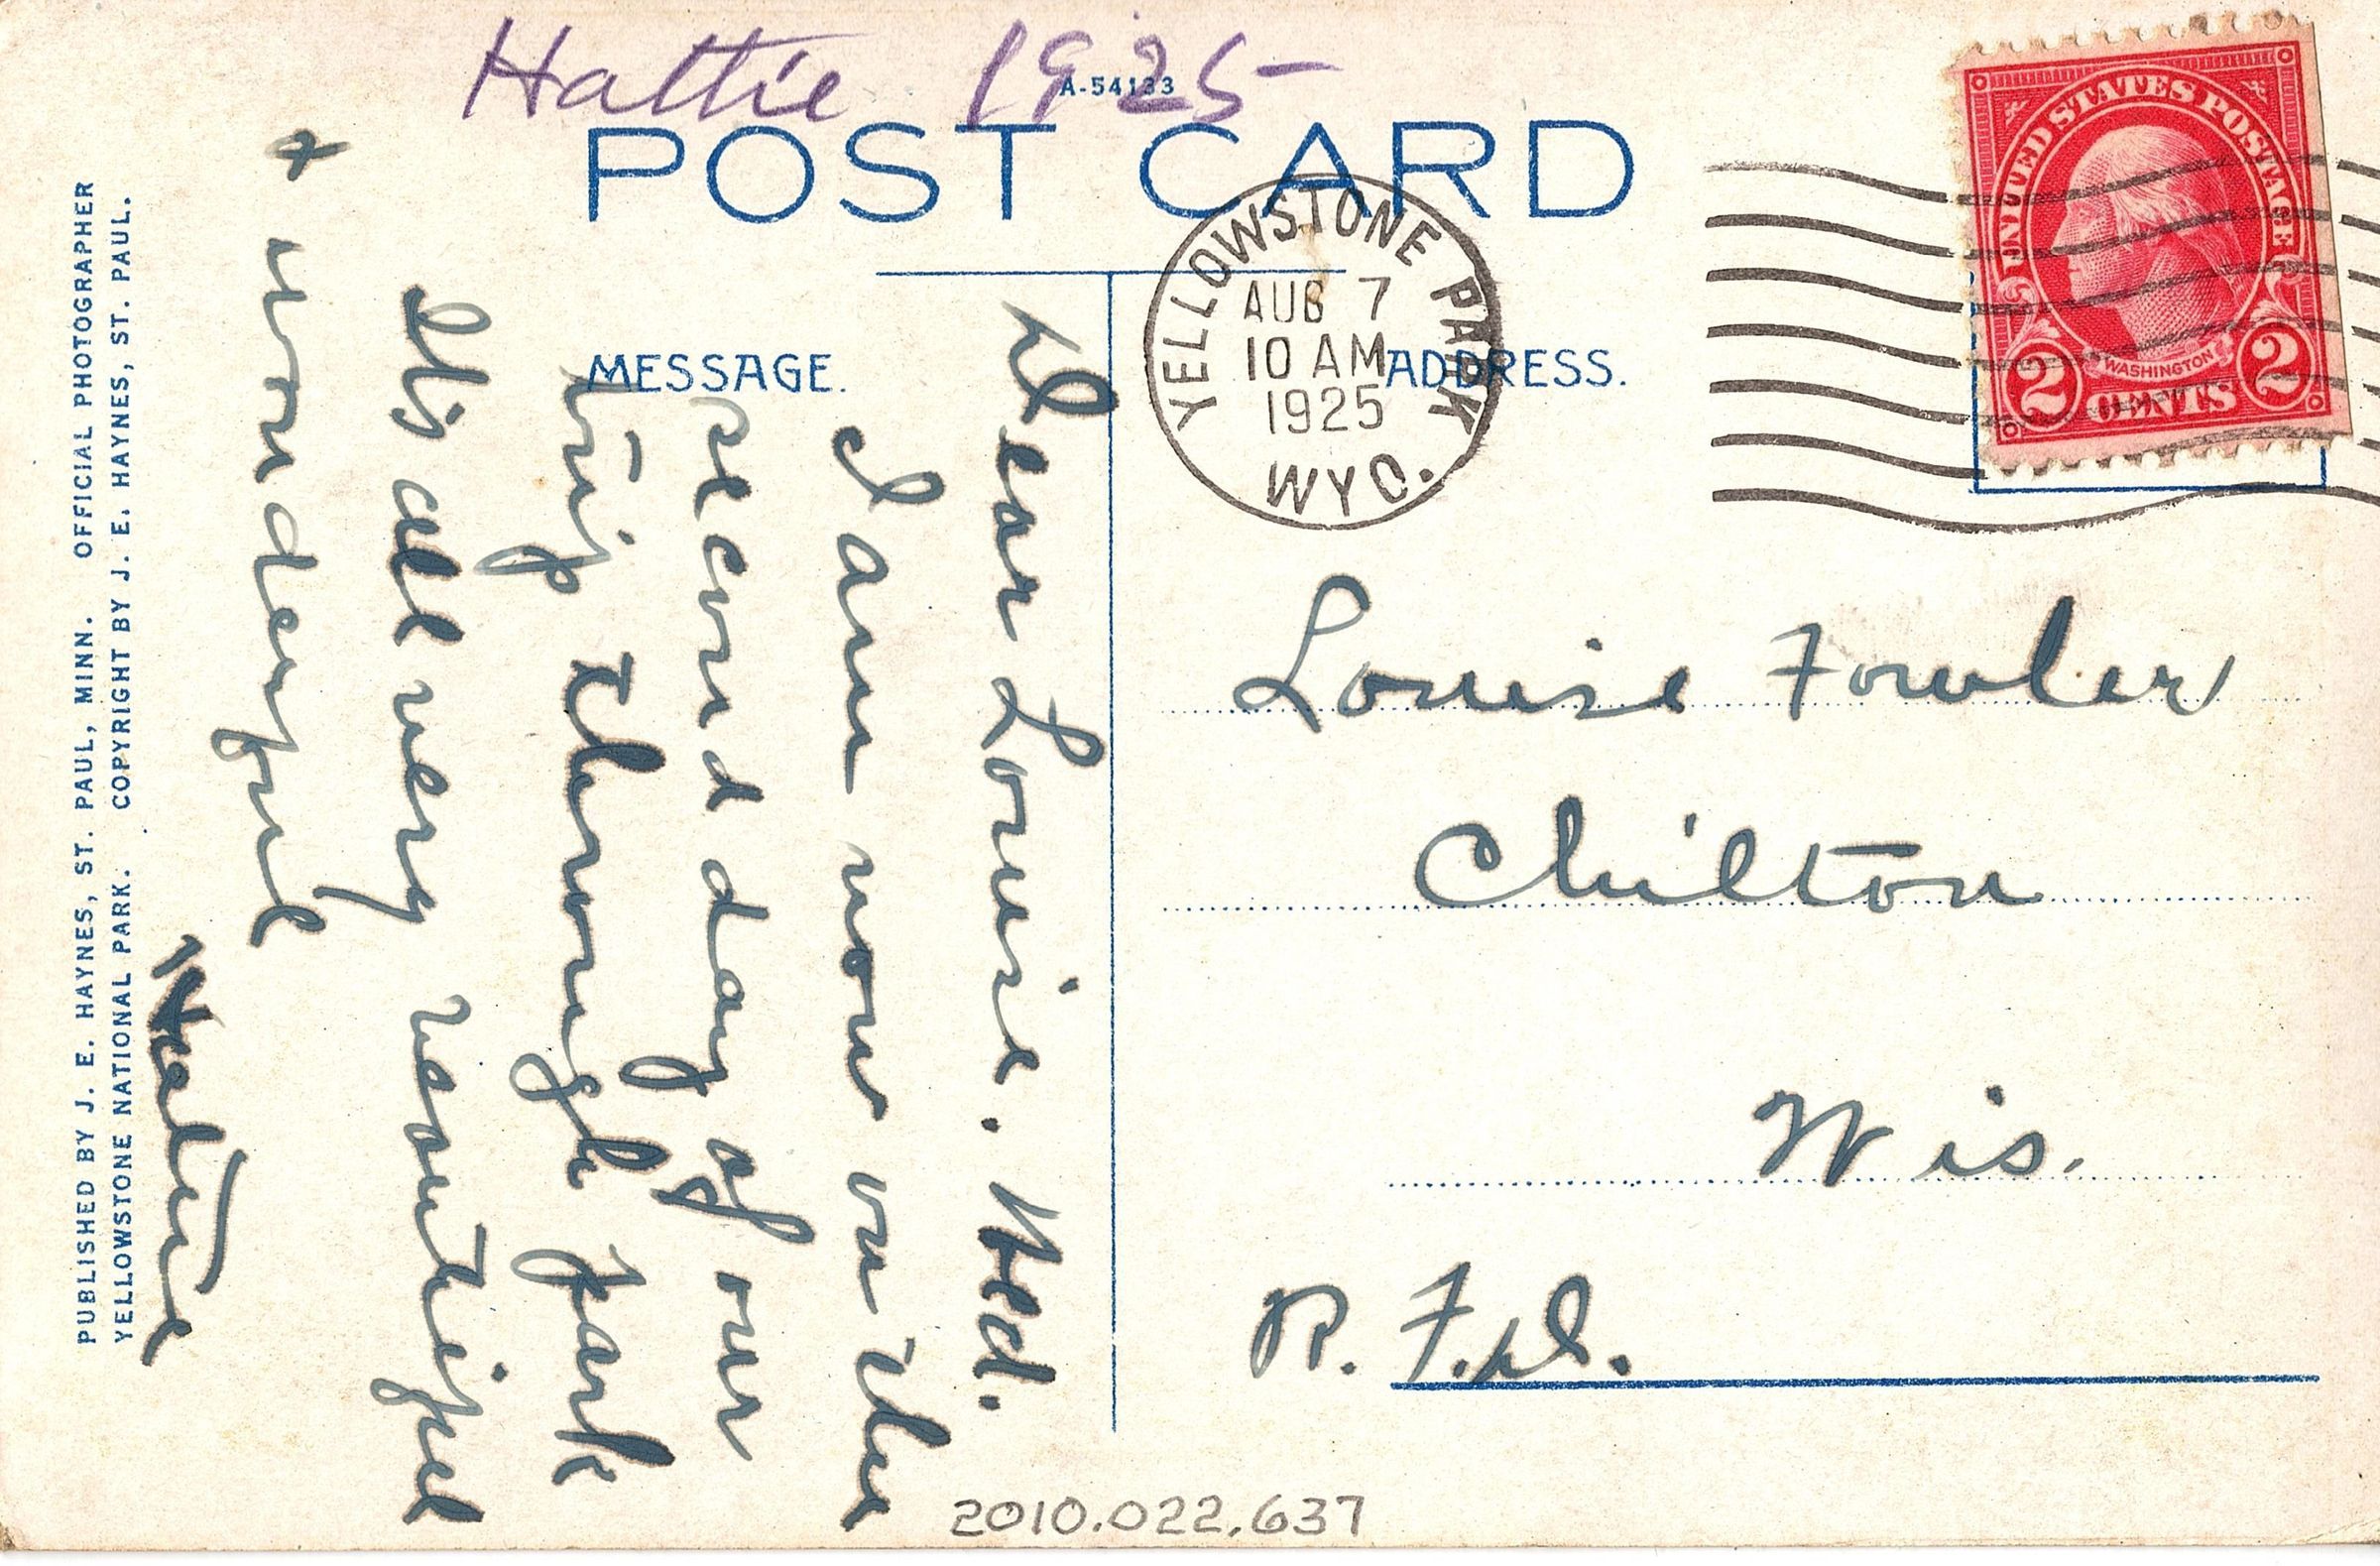 Hattie 1925
A-54133
POST CARD
MESSAGE.
ADDRESS.
YELLOWSTONE PARK
AUG 7
10 AM
1925
WYO.
UNITED STATES POSTAGE
WASHINGTON
2 CENTS 2
Dear Louise. Wed.
I am now on the
second day of our
trip through park
Its all very beautiful
+ wonderful
Hattie
Louise Fowler
Chilton
Wis.
R. F. D.
PUBLISHED BY J. E. HAYNES, ST. PAUL, MINN. OFFICIAL PHOTOGRAPHER
YELLOWSTONE NATIONAL PARK. COPYRIGHT BY J. E. HAYNES, ST. PAUL.
2010.022.637